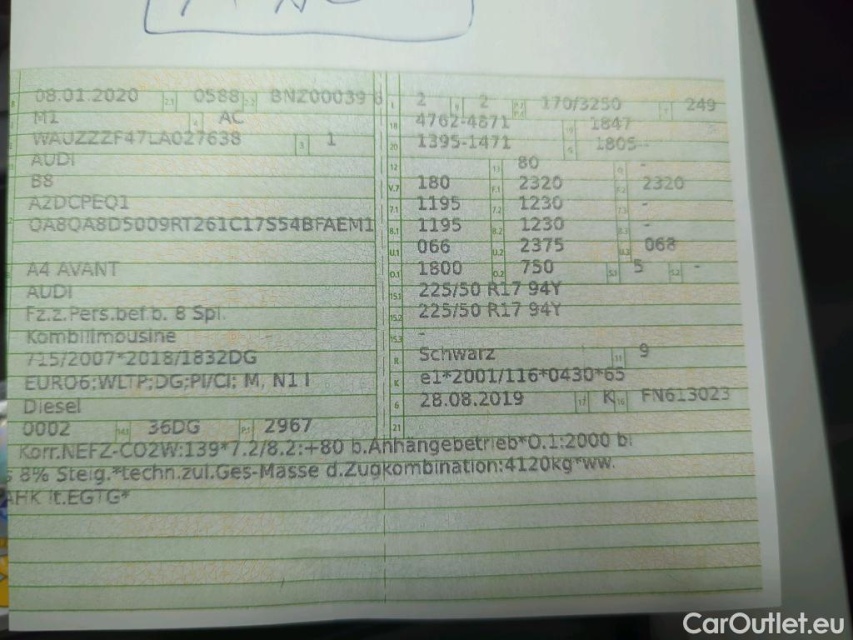 08.01.2020 0588 BNZ00039 6
M1 AC
WAUZZZF47LA027638 1
AUDI
B8
A2DCPEQ1
QA8QA8D5009RT261C17S54BFAEM1
A4 AVANT
AUDI
Fz.z.Pers.bef b. 8 Spl.
Kombilimousine
715/2007*2018/1832DG
EURO6;WLTP;DG;PI/CI; M, N1 I
Diesel
0002 36DG 2967
2 2 170/3250 249
4762-4871 1847
1395-1471 1805--
80 -
180 2320 2320
1195 1230 -
1195 1230 -
066 2375 068
1800 750 5 -
225/50 R17 94Y
225/50 R17 94Y
-
Schwarz 9
e1*2001/116*0430*65
28.08.2019 K FN613023
21
Korr.NEFZ-CO2W:139*7.2/8.2:+80 b.Anhängebetrieb*O.1:2000 bi
s 8% Steig.*techn.zul.Ges-Masse d.Zugkombination:4120kg*ww.
AHK lt.EGTG*
CarOutlet.eu